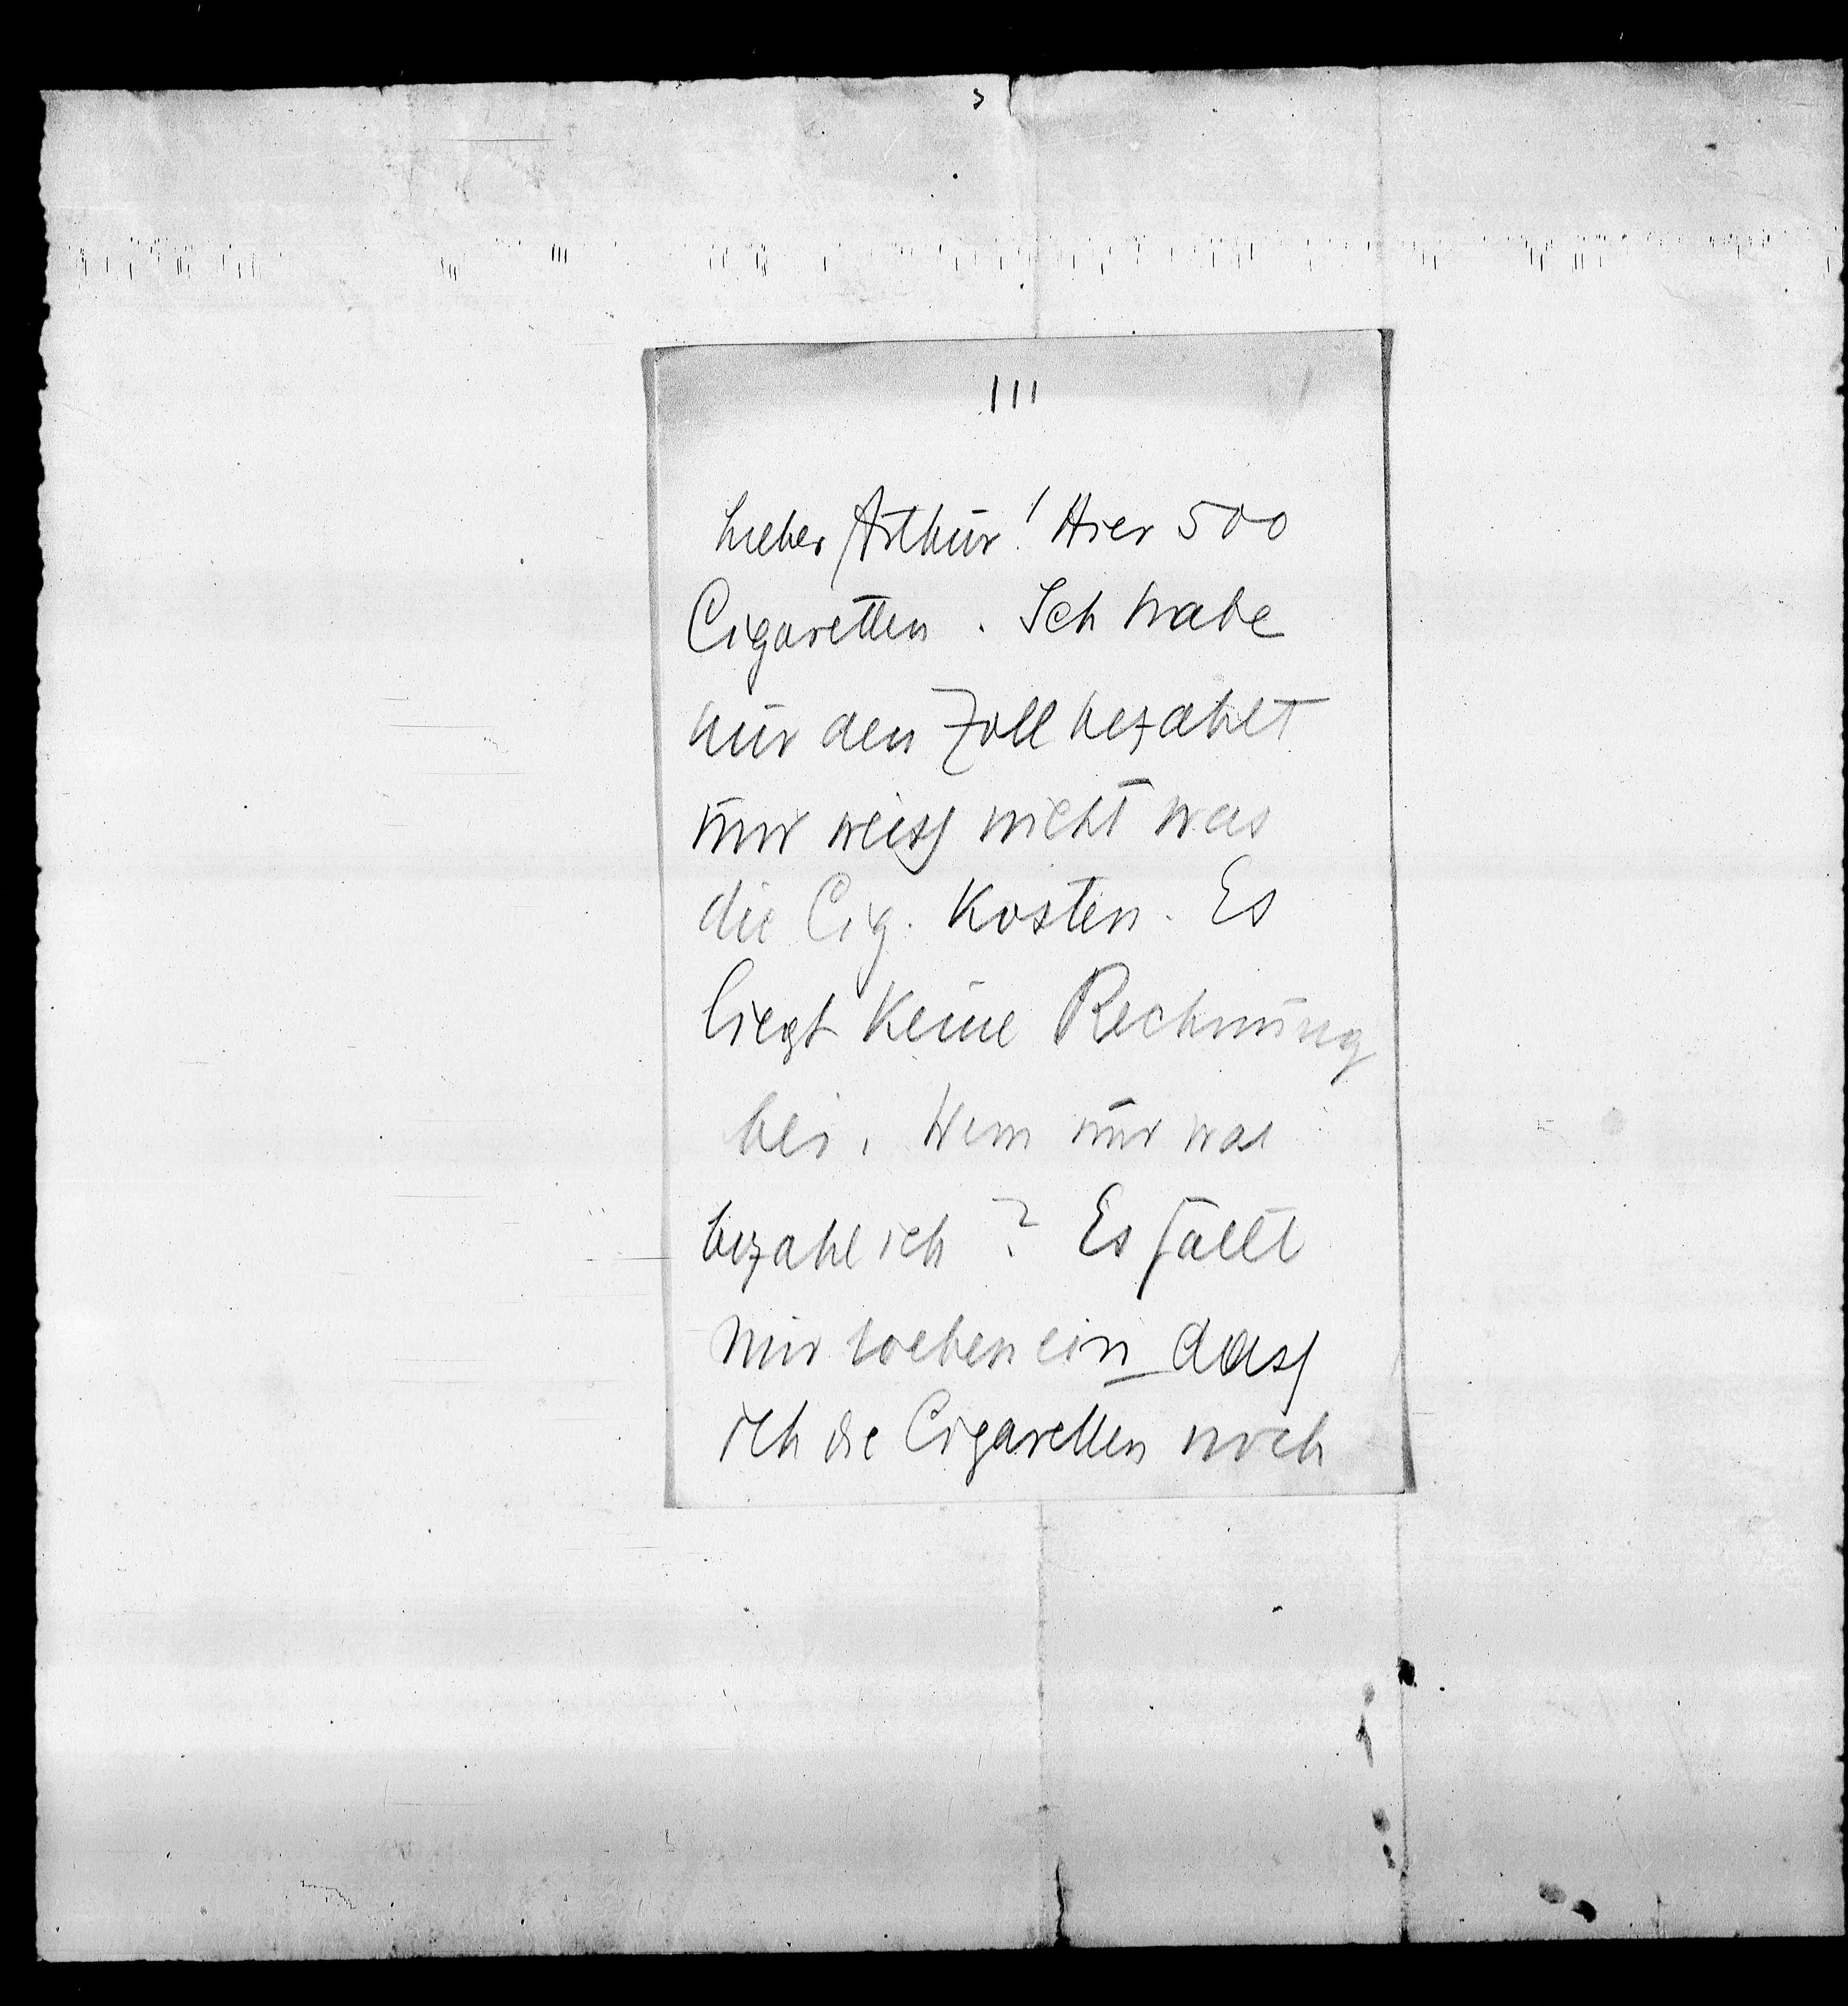 III
Lieber Arthur! Hier 500
Cigaretten. Ich habe
nur den Zoll bezahlt
und weiss nicht was
die Cig. kosten. Es
liegt keine Rechnung
bei. Wem und was
bezahl ich? Es fällt
mir soeben ein dass
ich die Cigaretten noch